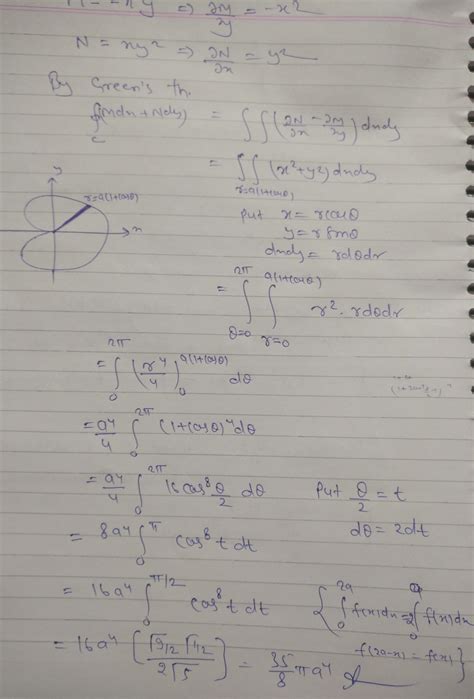 M = -x²y ⇒ ∂M/∂y = -x²
N = xy² ⇒ ∂N/∂x = y²
By Green's th.
∮_C (Mdx + Ndy) = ∬ (∂N/∂x - ∂M/∂y) dxdy
= ∬_{r=a(1+cosθ)} (x²+y²) dxdy
y
r=a(1+cosθ)
x
Put x = r cosθ
y = r sinθ
dxdy = r dθ dr
= ∫_{θ=0}^{2π} ∫_{r=0}^{a(1+cosθ)} r² · r dθ dr
= ∫_0^{2π} (r⁴/4)_0^{a(1+cosθ)} dθ
= a⁴/4 ∫_0^{2π} (1+cosθ)⁴ dθ
= a⁴/4 ∫_0^{2π} 16 cos⁸ θ/2 dθ Put θ/2 = t
dθ = 2dt
= 8a⁴ ∫_0^π cos⁸ t dt
= 16a⁴ ∫_0^{π/2} cos⁸ t dt { ∫_0^{2a} f(x)dx = 2∫_0^a f(x)dx
f(2a-x) = f(x) }
= 16a⁴ ( √9/2 √1/2 / 2√5 ) = 35/8 πa⁴